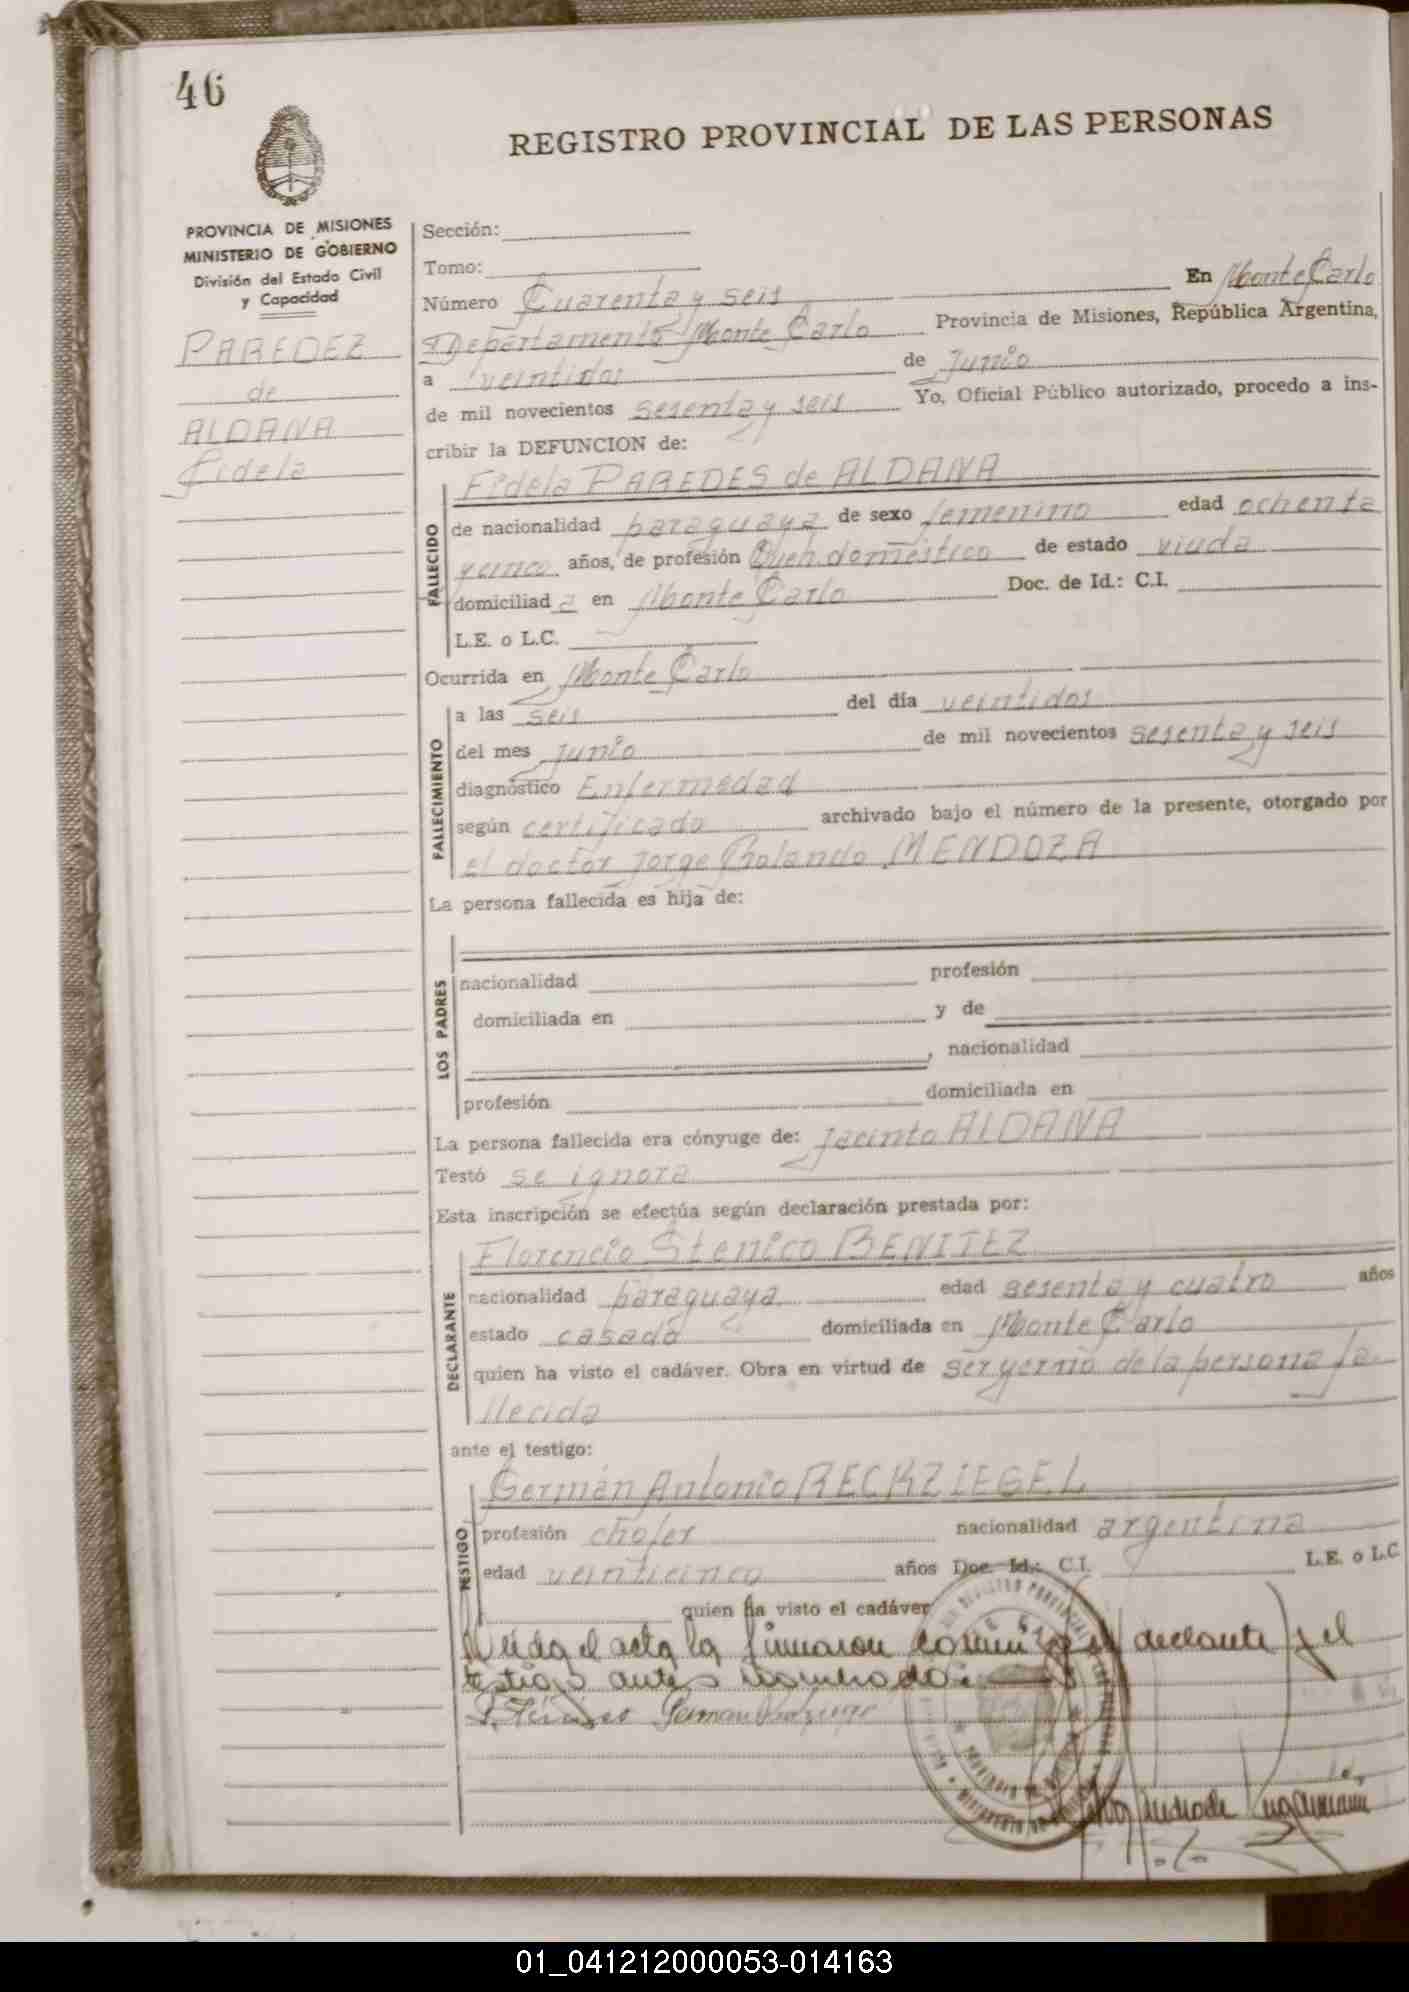 46
REGISTRO PROVINCIAL DE LAS PERSONAS
PROVINCIA DE MISIONES
MINISTERIO DE GOBIERNO
División del Estado Civil
y Capacidad
PAREDEZ
de
ALDANA
Fidela
Sección:
Tomo:
Número Cuarenta y seis En Monte Carlo
Departamento Monte Carlo Provincia de Misiones, República Argentina,
a veintidos de Junio
de mil novecientos sesenta y seis Yo, Oficial Público autorizado, procedo a ins-
cribir la DEFUNCION de:
FALLECIDO
Fidela PAREDES de ALDANA
de nacionalidad paraguaya de sexo femenino edad ochenta
años, de profesión Queh. doméstico de estado viuda
domiciliad a en Monte Carlo Doc. de Id.: C.I.
L.E. o L.C.
Ocurrida en Monte Carlo
FALLECIMIENTO
a las seis del día veintidos
del mes junio de mil novecientos sesenta y seis
diagnóstico Enfermedad
según certificado archivado bajo el número de la presente, otorgado por
el doctor Jorge Rolando MENDOZA
La persona fallecida es hija de:
LOS PADRES
nacionalidad profesión
domiciliada en y de
, nacionalidad
profesión domiciliada en
La persona fallecida era cónyuge de: Jacinto ALDANA
Testó se ignora
Esta inscripción se efectúa según declaración prestada por:
DECLARANTE
Florencio Stenico BENITEZ
nacionalidad paraguaya edad sesenta y cuatro años
estado casado domiciliada en Monte Carlo
quien ha visto el cadáver. Obra en virtud de ser yerno de la persona fa-
llecida
ante el testigo:
TESTIGO
Germán Antonio RECKZIEGEL
profesión chofer nacionalidad argentina
edad veinticinco años Doc. Id.: C.I. L.E. o L.C.
quien ha visto el cadáver
el acta la firmaron declarante y el
testigo antes nombrado:
01_041212000053-014163